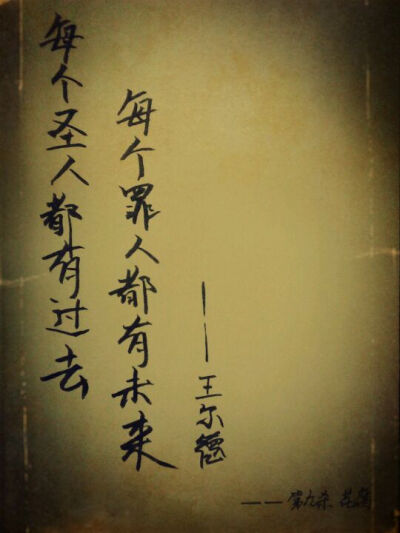 每个圣人都有过去
每个罪人都有未来
——王尔德
——第九杀